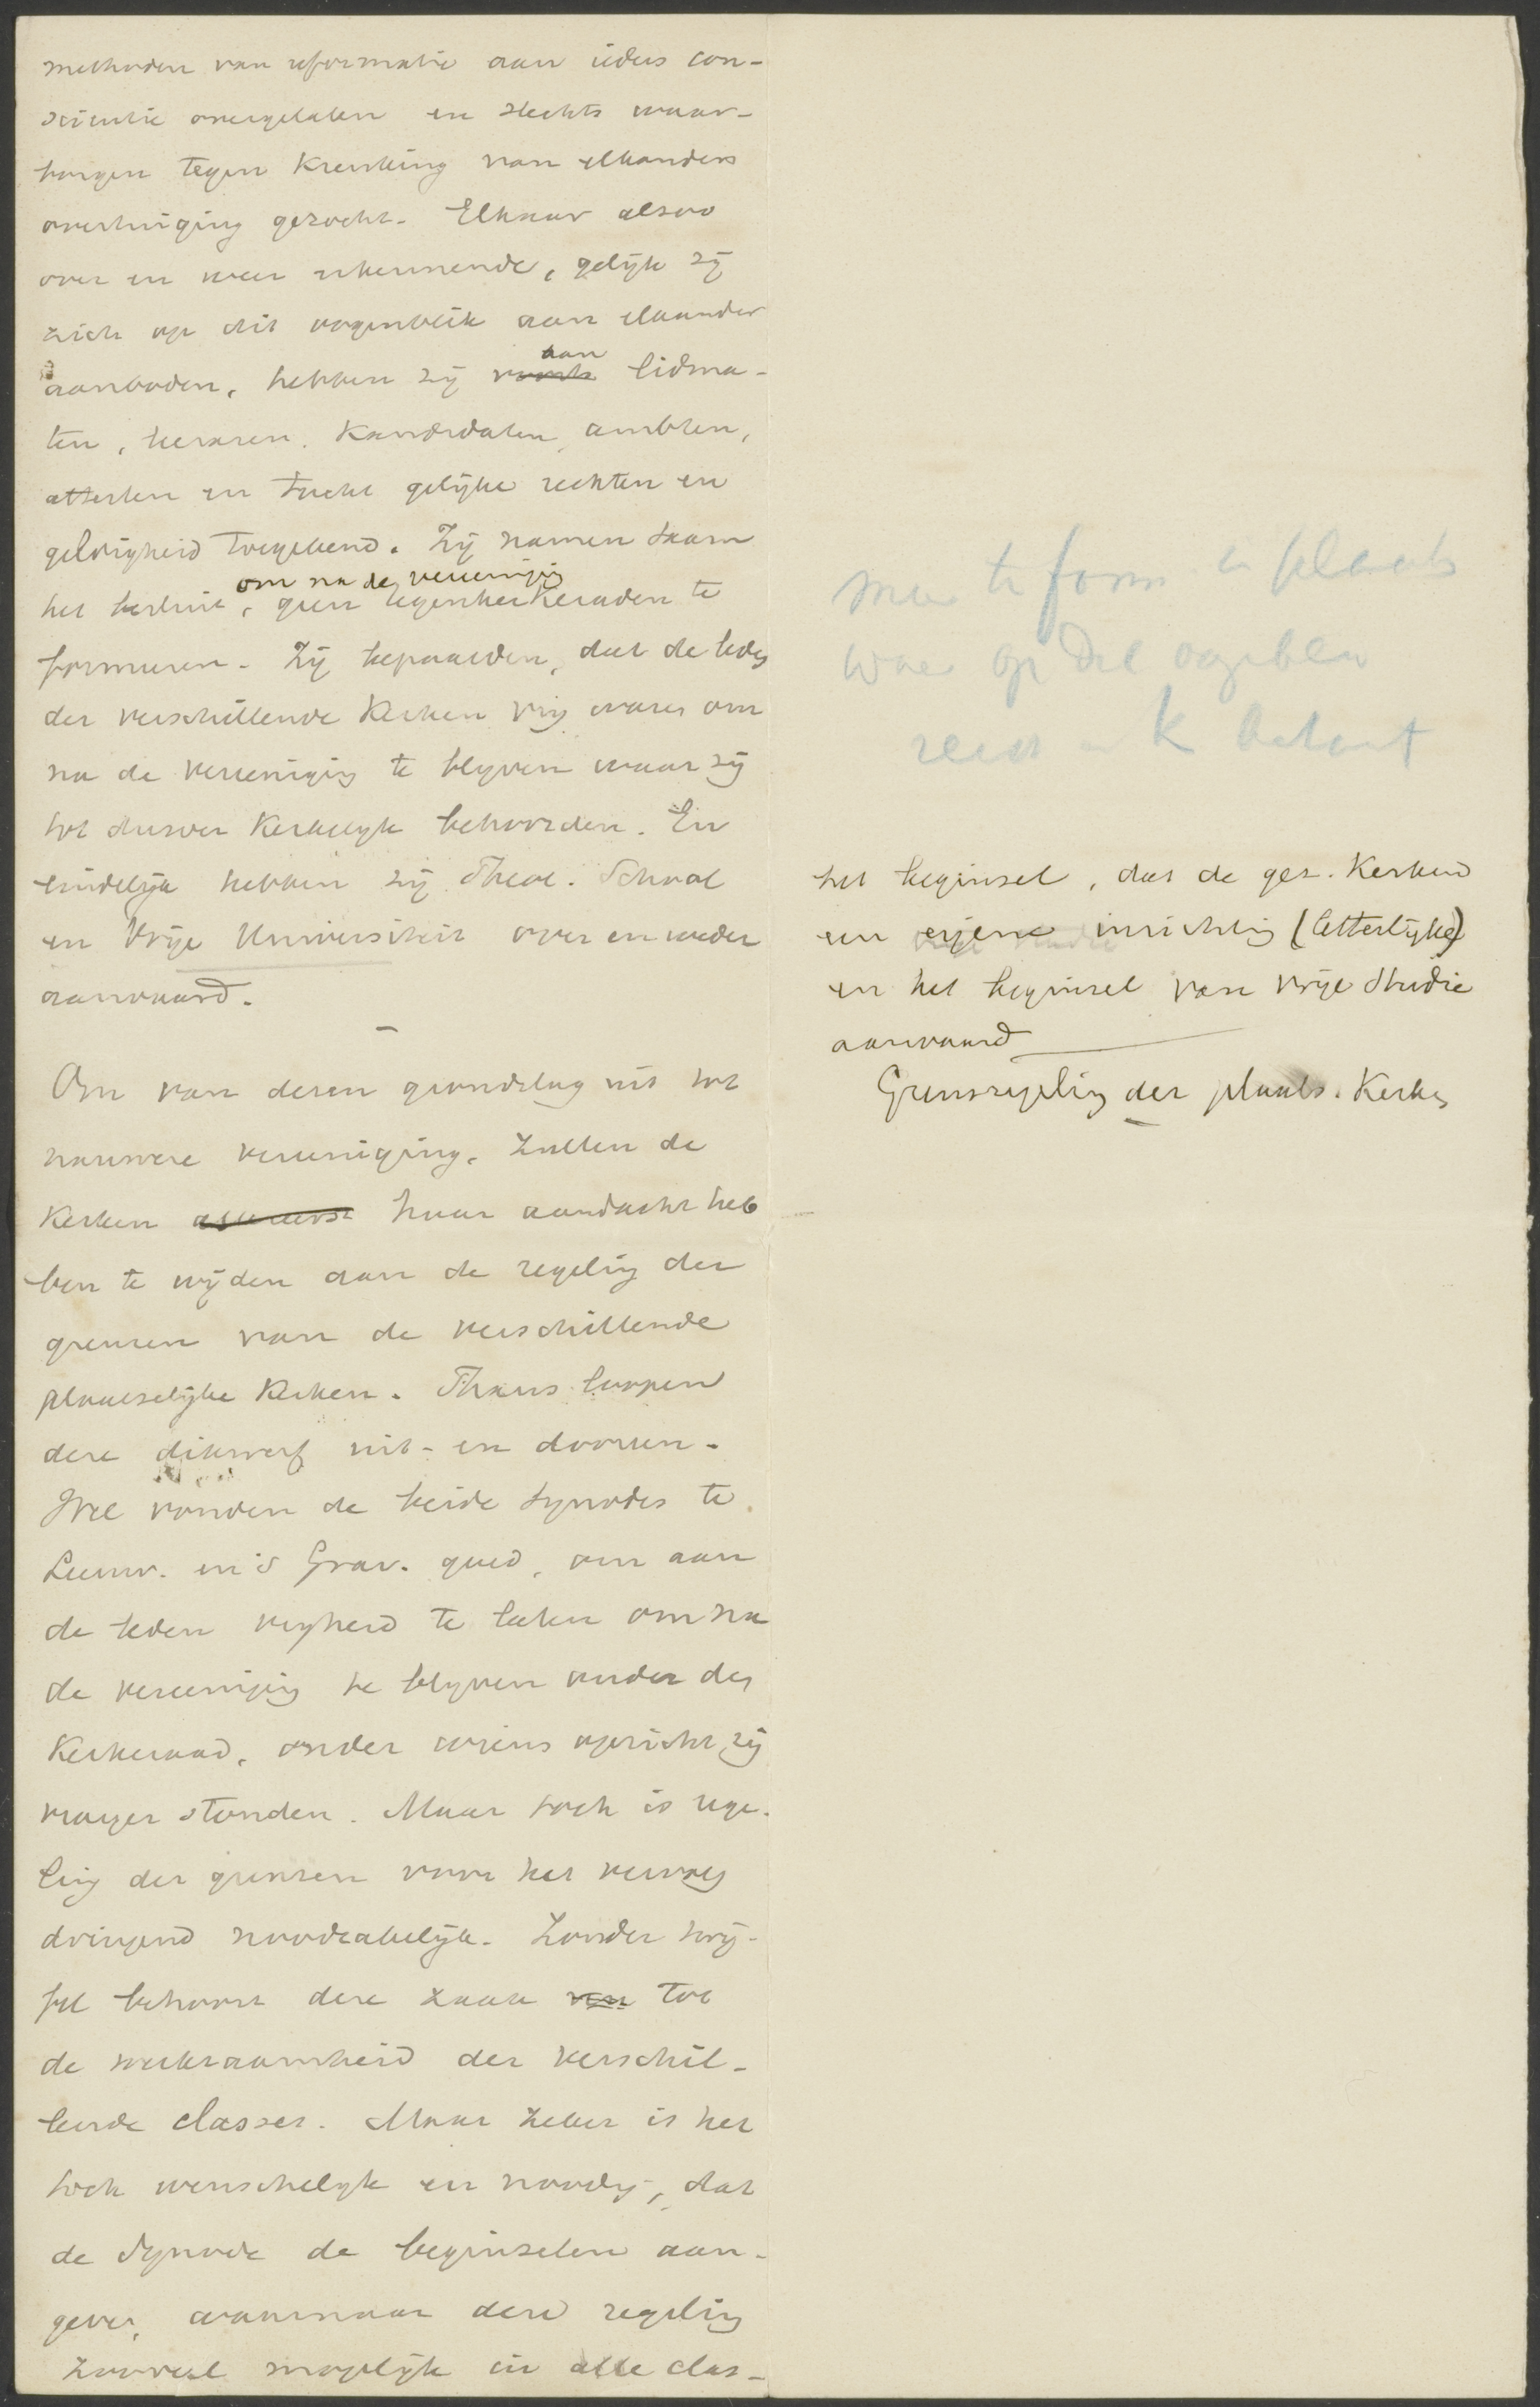 methoden van reformatie aan ieders con-
scientie overgelaten en slechts waar-
borgen tegen krenking van elkanders
overtuiging gezocht. Elkaar alzoo
over en weer erkennende, gelijk zij
zich op dit oogenblik aan elkander
aanboden, hebben zij aan lidma-
ten, leeraren, kandidaten, ambten,
attesten en tucht gelijke rechten en
geldigheid toegekend. Zij namen saam
het besluit, om na de vereeniging geen tegenkerkeraden te
formeeren. Zij bepaalden, dat de leden
der verschillende Kerken vrij waren om
na de vereeniging te blijven waar zij
tot dusver Kerkelijk behoorden. En
eindelijk hebben zij Theol. School
en Vrije Universiteit over en weder
aanvaard.
Om van dezen grondslag uit tot
nauwere vereeniging, zullen de
Kerken haar aandacht heb
ben te wijden aan de regeling der
grenzen van de verschillende
plaatselijke Kerken. Thans loopen
deze dikwerf uit- en dooreen.
Wel vonden de beide Synodes te
Leeuw. en 's Grav. goed, om aan
de leden vrijheid te laten om na
de vereeniging te blijven onder den
Kerkeraad, onder wiens opzicht zij
vroeger stonden. Maar toch is rege-
ling der grenzen voor het vervolg
dringend noodzakelijk. Zonder twij-
fel behoort deze zaak tot
de werkzaamheid der verschil-
lende classes. Maar zeker is het
toch wenschelijk en noodig, dat
de Synode de beginselen aan-
geve, waarnaar deze regeling
zooveel mogelijk in alle clas-
op
het beginsel, dat de ger. Kerken
een eigene inrichting (letterlijke)
en het beginsel van vrije studie
aanvaard
Grensregeling der plaats. Kerken